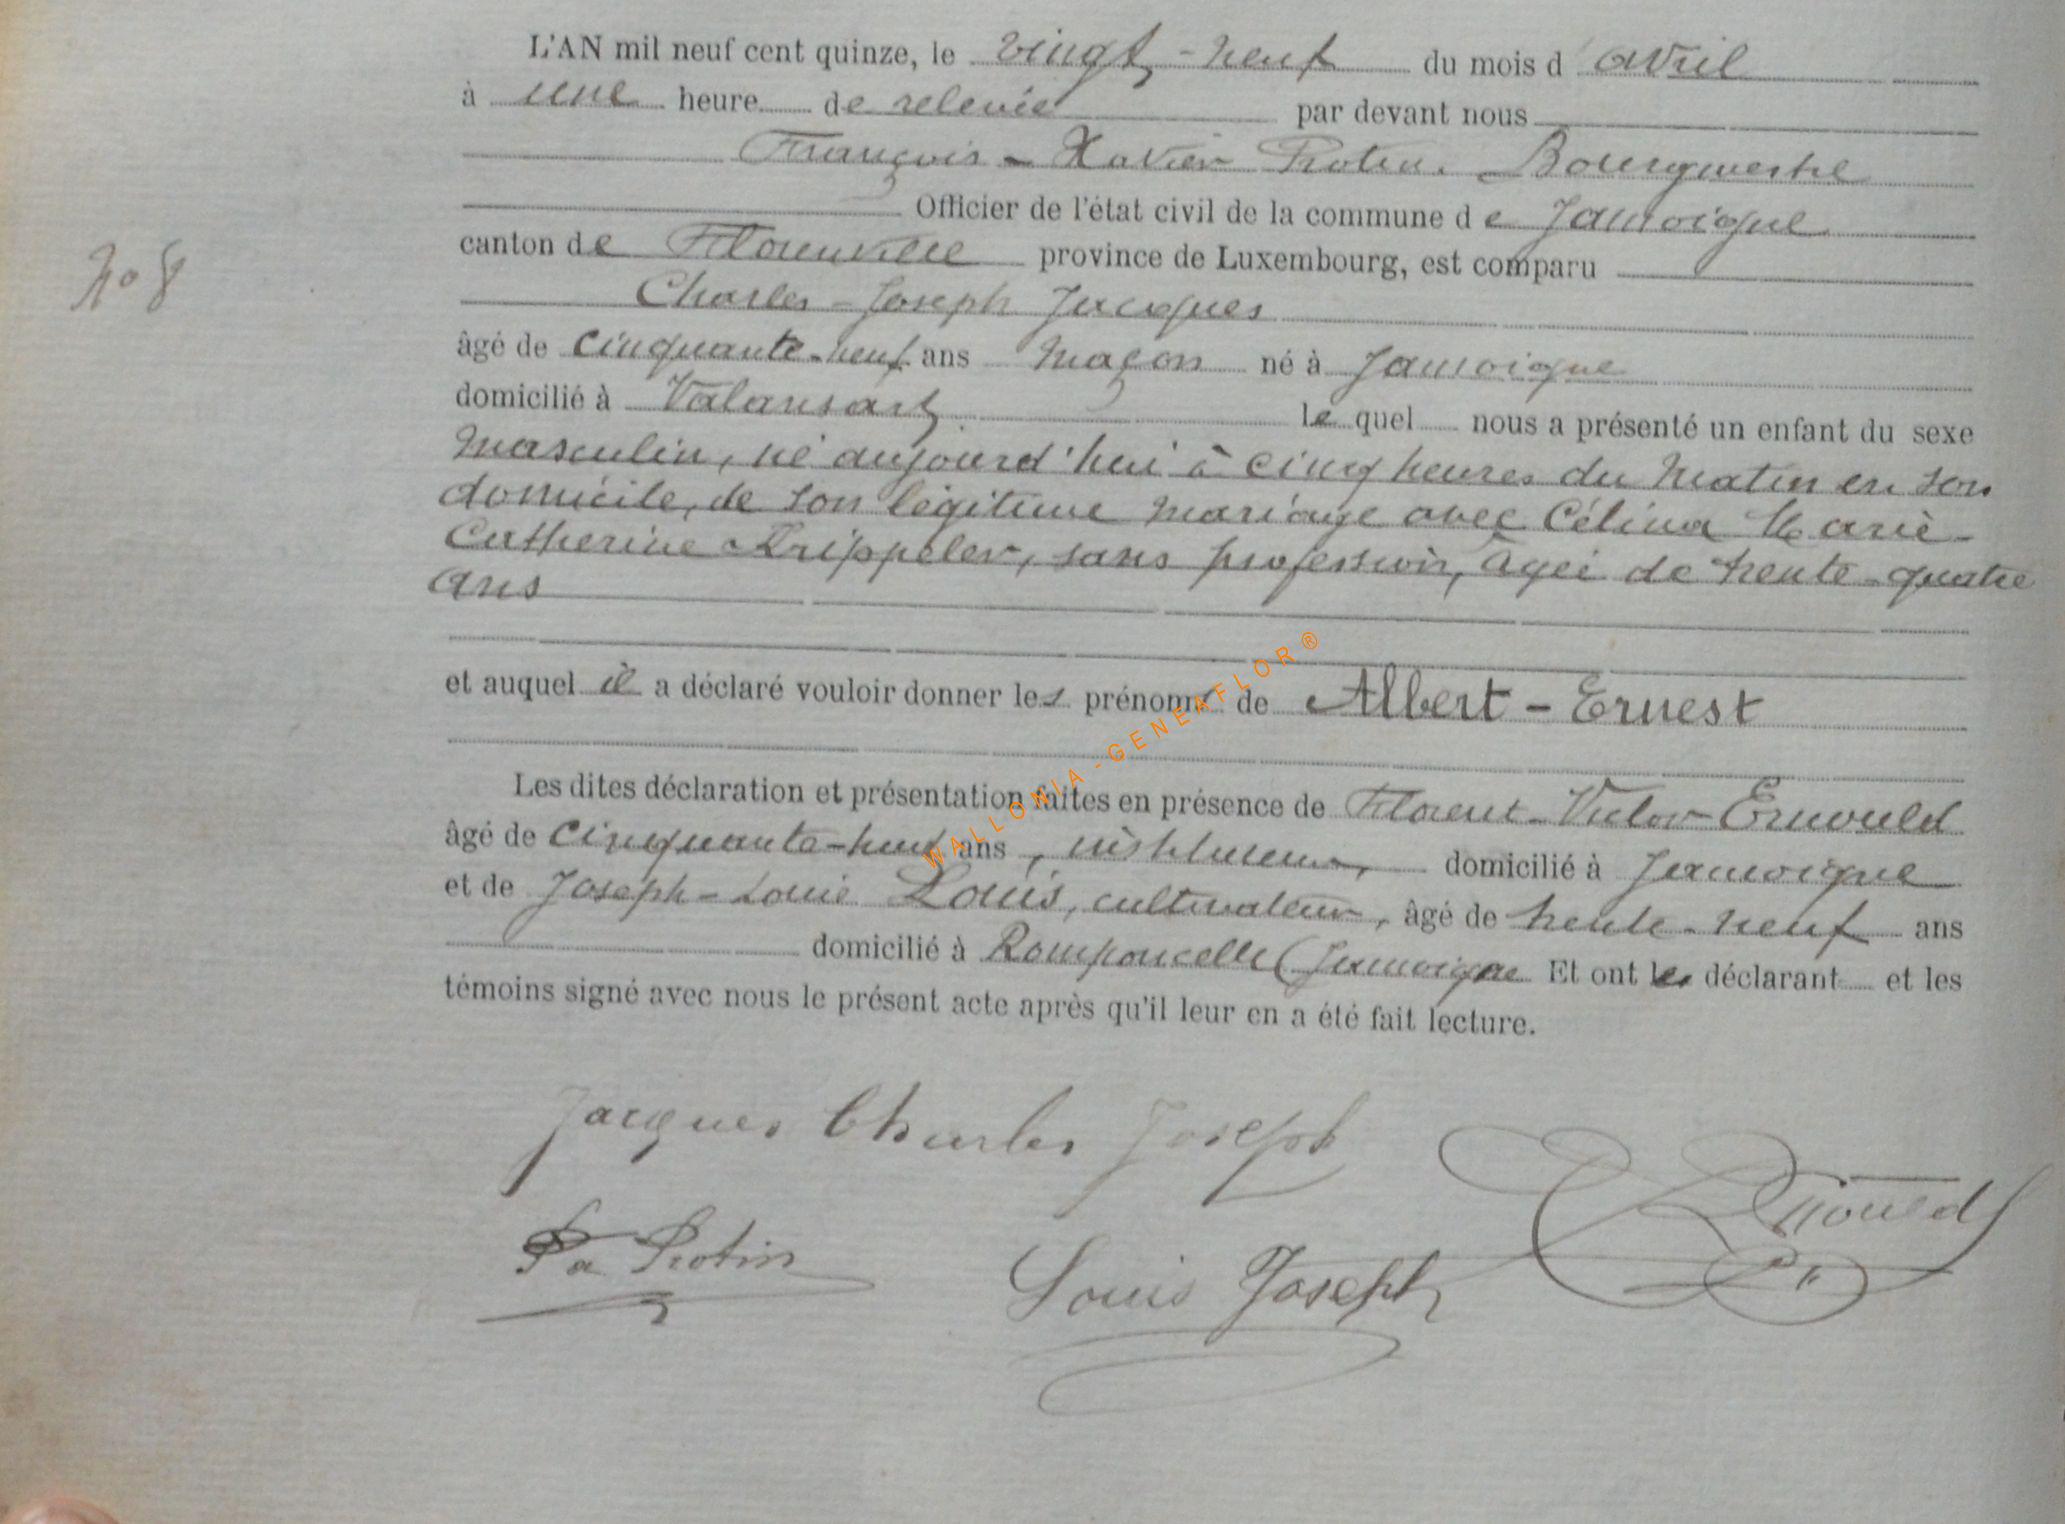 L'AN mil neuf cent quinze, le vingt-neuf du mois d'avril
à une heure de relevée par devant nous
François-Xavier Protin. Bourgmestre
Officier de l'état civil de la commune de Jamoigne
N° 8
canton de Florenville province de Luxembourg, est comparu
Charles-Joseph Jacques
âgé de cinquante-neuf ans maçon né à Jamoigne
domicilié à Valansart le quel nous a présenté un enfant du sexe
masculin, né aujourd'hui à cinq heures du matin en son
domicile, de son légitime mariage avec Célina Marie-
Catherine Krippeler, sans profession, âgée de trente-quatre
ans
et auquel il a déclaré vouloir donner les prénoms de Albert-Ernest
Les dites déclaration et présentation faites en présence de Florent-Victor Ernould
âgé de cinquante-huit ans, instituteur, domicilié à Jamoigne
et de Joseph-Louis Louis, cultivateur, âgé de trente-neuf ans
domicilié à Romponcelle (Jamoigne Et ont les déclarant et les
témoins signé avec nous le présent acte après qu'il leur en a été fait lecture.
Jacques Charles Joseph
Protin
Louis Joseph
Ernould
WALLONIA-GENEAFLOR®